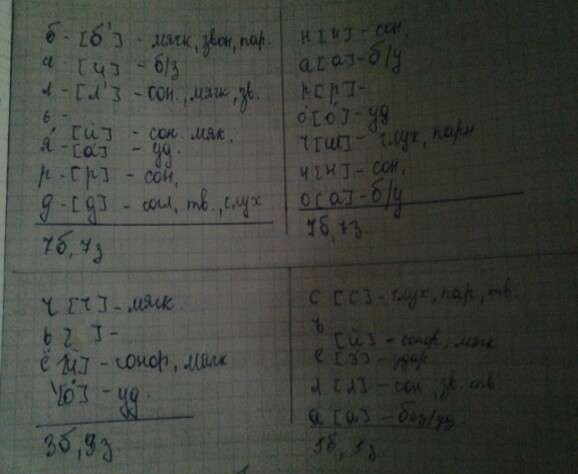 б - [б'] - мягк, звон, пар.
и [и] - б/з
л - [л'] - сон., мягк, зв.
ь -
[й] - сон. мяк.
я - [а] - уд.
р - [р] - сон,
д - [д] - согл, тв., глух
7б, 7з
н [н] - сон.
а [а] - б/у
р [р] -
о́ [о́] - уд
ч [ш] - глух, парн
н [н] - сон.
о [а] - б/у
7б, 7з
ч [ч] - мягк.
ь [ ] -
ё [й] - сонор, мягк
[о́] - уд.
3б, 3з
с [с] - глух, пар, тв.
ъ
[й] - сонор, мягк
е [э] - удар
л [л] - сон, зв. тв.
а [а] - без/уд
5б, 5з